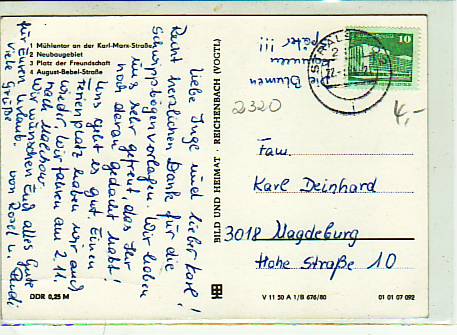 1 Mühlentor an der Karl-Marx-Straße
2 Neubaugebiet
3 Platz der Freundschaft
4 August-Bebel-Straße
Liebe Inge und lieber Karl!
Recht herzlichen Dank für die
Schwippbögenvorlagen. Wir haben
uns sehr gefreut, das Ihr
noch daran gedacht habt!
Uns geht es gut. Einen
Ferienplatz haben wir auch
wieder, wir fahren am 2.11.
nach Malchow.
Wir wünschen Euch alles Gute
für Euren Urlaub.
Viele Grüße von Rosel u. Rudi
Die Blumen
später !!!
STRALS
10
2320
4,-
BILD UND HEIMAT · REICHENBACH (VOGTL)
Fam.
Karl Deinhard
3018 Magdeburg
Hohe Straße 10
DDR 0,25 M
V 11 50 A 1/B 676/80
01 01 07 092